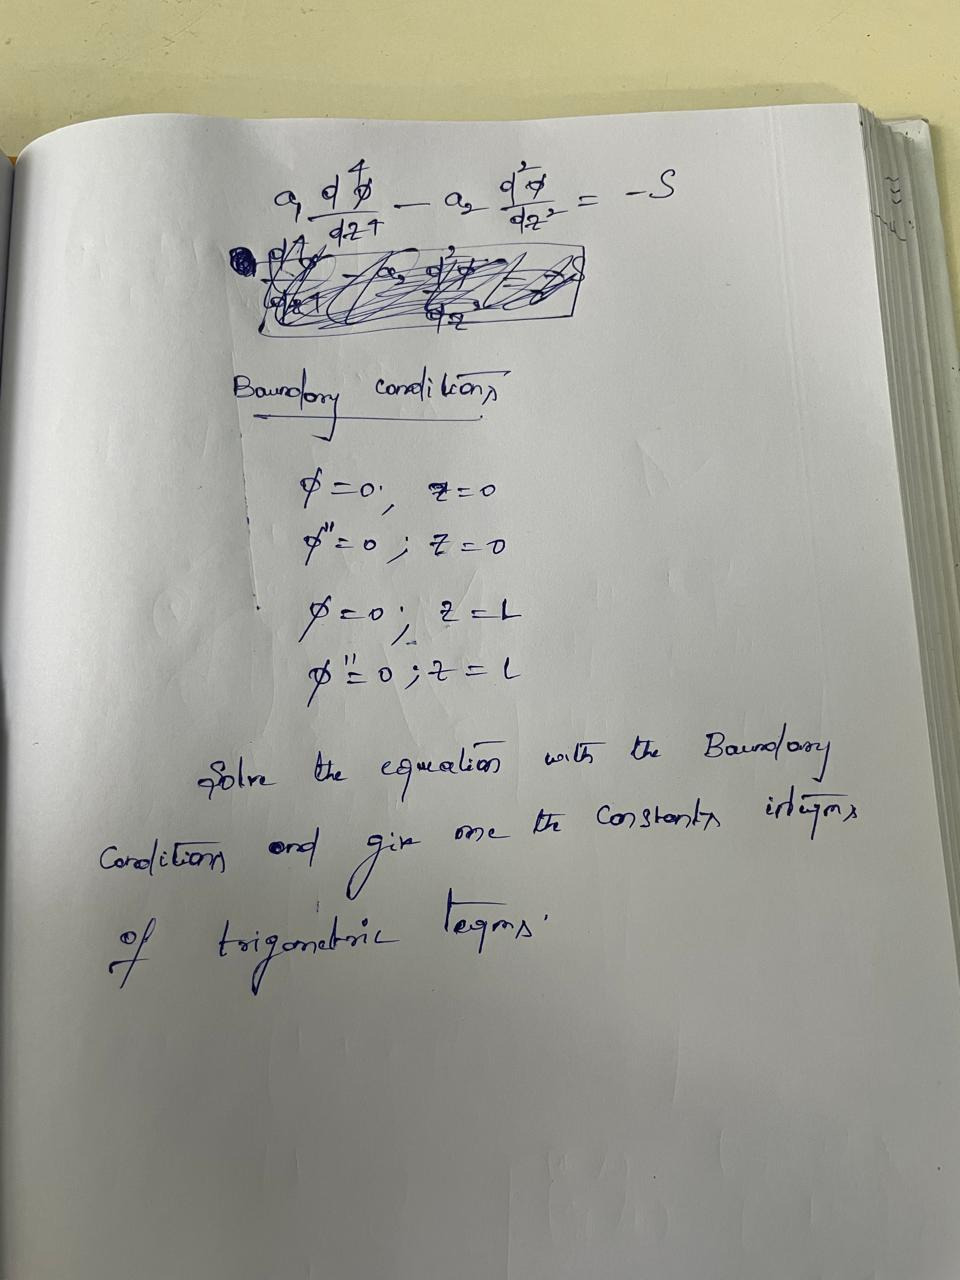 a₁ d⁴φ/dz⁴ — a₂ d²φ/dz² = -S
Boundary conditions
φ=0; z=0
φ''=0; z=0
φ=0; z=L
φ''=0; z=L
Solve the equation with the Boundary
Conditions and give me the Constants interms
of trigometric terms.